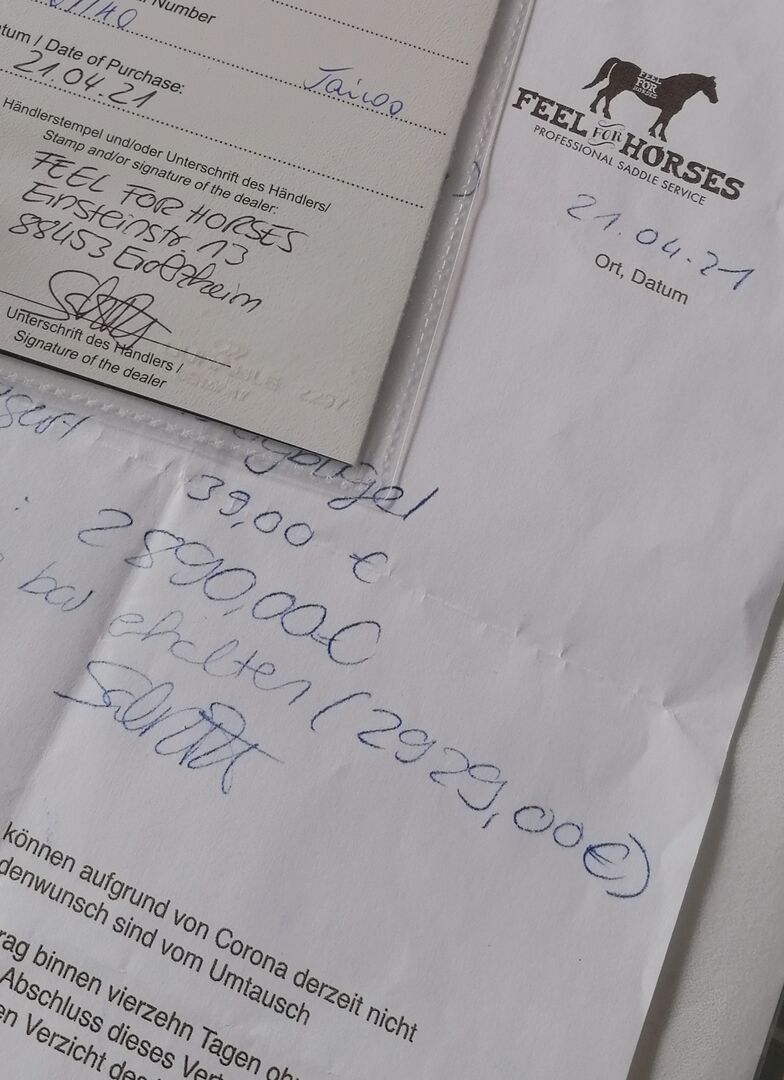 Number
tum / Date of Purchase:
21.04.21
Händlerstempel und/oder Unterschrift des Händlers/
Stamp and/or signature of the dealer:
FEEL FOR HORSES
Einsteinstr. 13
88453 Erolzheim
Unterschrift des Händlers /
Signature of the dealer
FEEL
FOR
HORSES
FEEL FOR HORSES
PROFESSIONAL SADDLE SERVICE
21.04.21
Ort, Datum
39,00 €
: 2890,00€
bar erhalten (2929,00€)
können aufgrund von Corona derzeit nicht
denwunsch sind vom Umtausch
rag binnen vierzehn Tagen oh
Abschluss dieses Vert
en Verzicht des